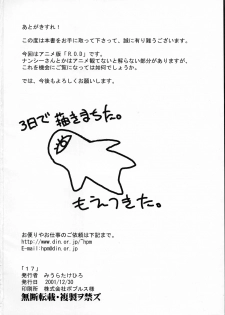 あとがきすれ!
この度は本書をお手に取って下さって、誠に有り難うございます。
今回はアニメ版「R.O.D」です。
ナンシーさんとかはアニメ観てないと解らない部分がありますが、
これを機会にご覧になっては如何でしょうか。
では、今後もよろしくお願いします。
3日で描きまちた。
もえつきた。
お便りやお仕事のご依頼は下記まで。
http://www.din.or.jp/~hpm
E-mail:hpm@din.or.jp
「17」
発行者 みうらたけひろ
発行日 2001/12/30
印刷所 株式会社ポプルス様
無断転載・複製ヲ禁ズ